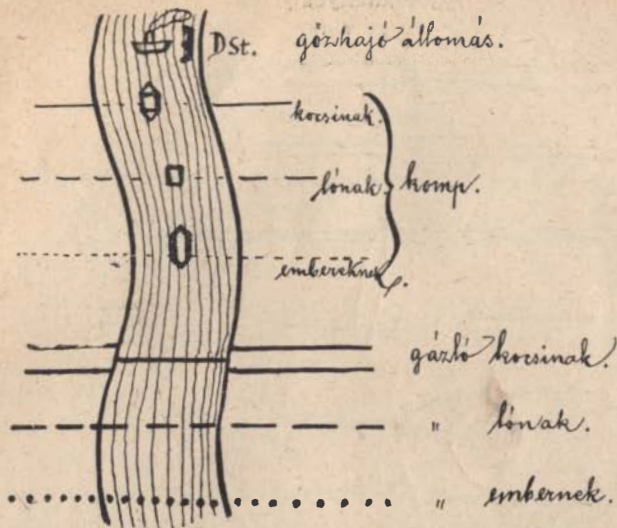 DSt. gőzhajó állomás.
kocsinak.
lónak komp.
embereknek.
gázló kocsinak.
" lónak.
" embernek.